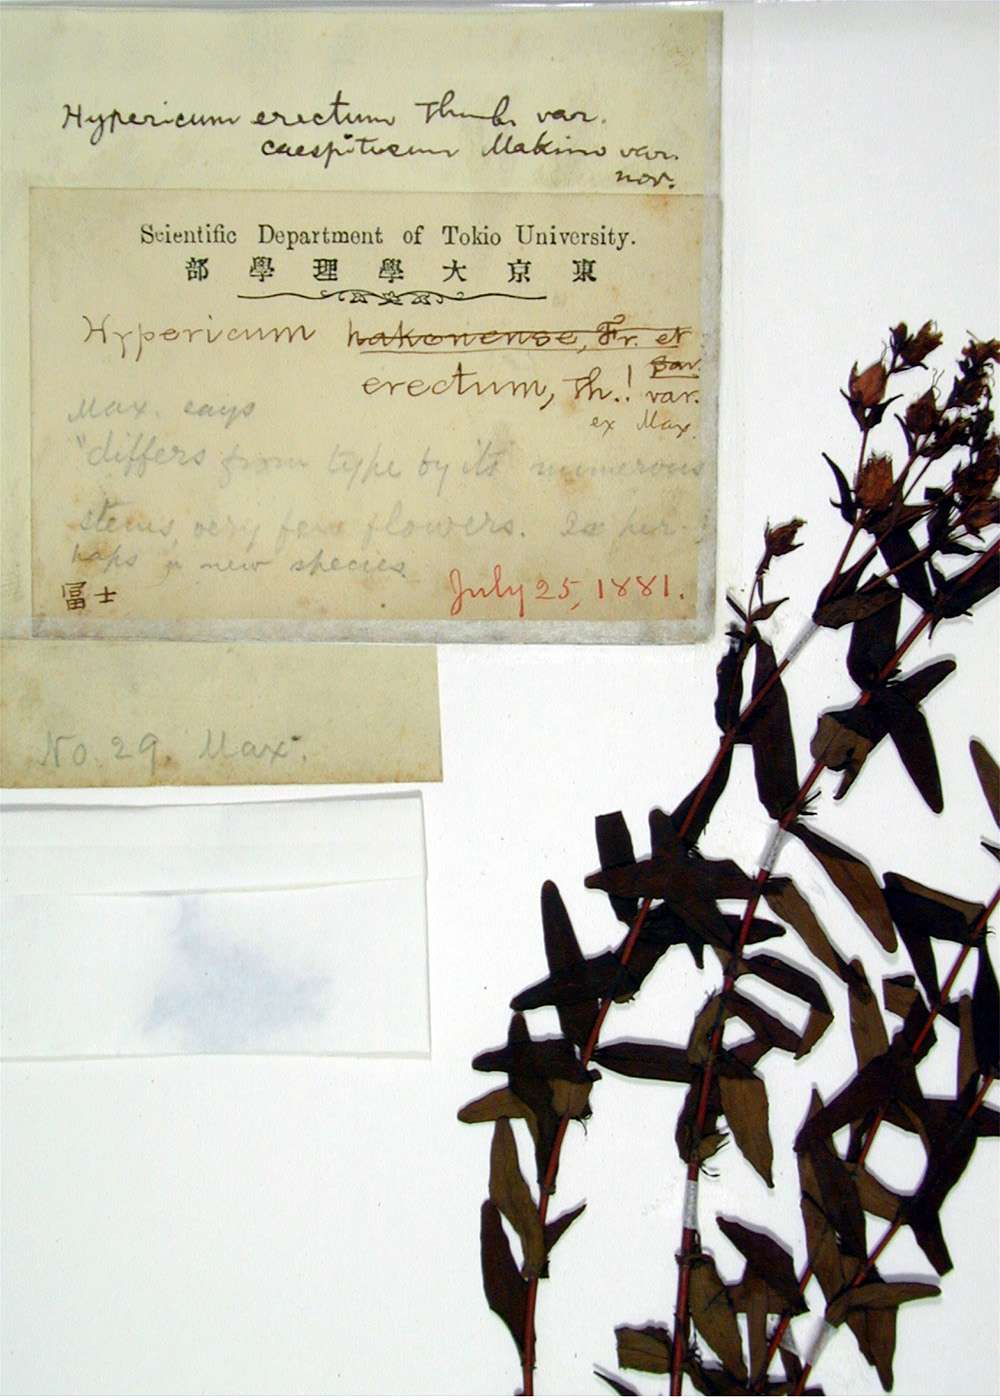 Hypericum erectum Thunb. var.
caespitosum Makino var.
nov.
Scientific Department of Tokio University.
部學理學大京東
Hypericum hakonense, Fr. et
Sav.
erectum, Th.! var.
ex Max.
Max. says
"differs from type by its numerous
stems, very few flowers. Is per-
haps a new species
冨士
July 25, 1881.
No. 29. Max.